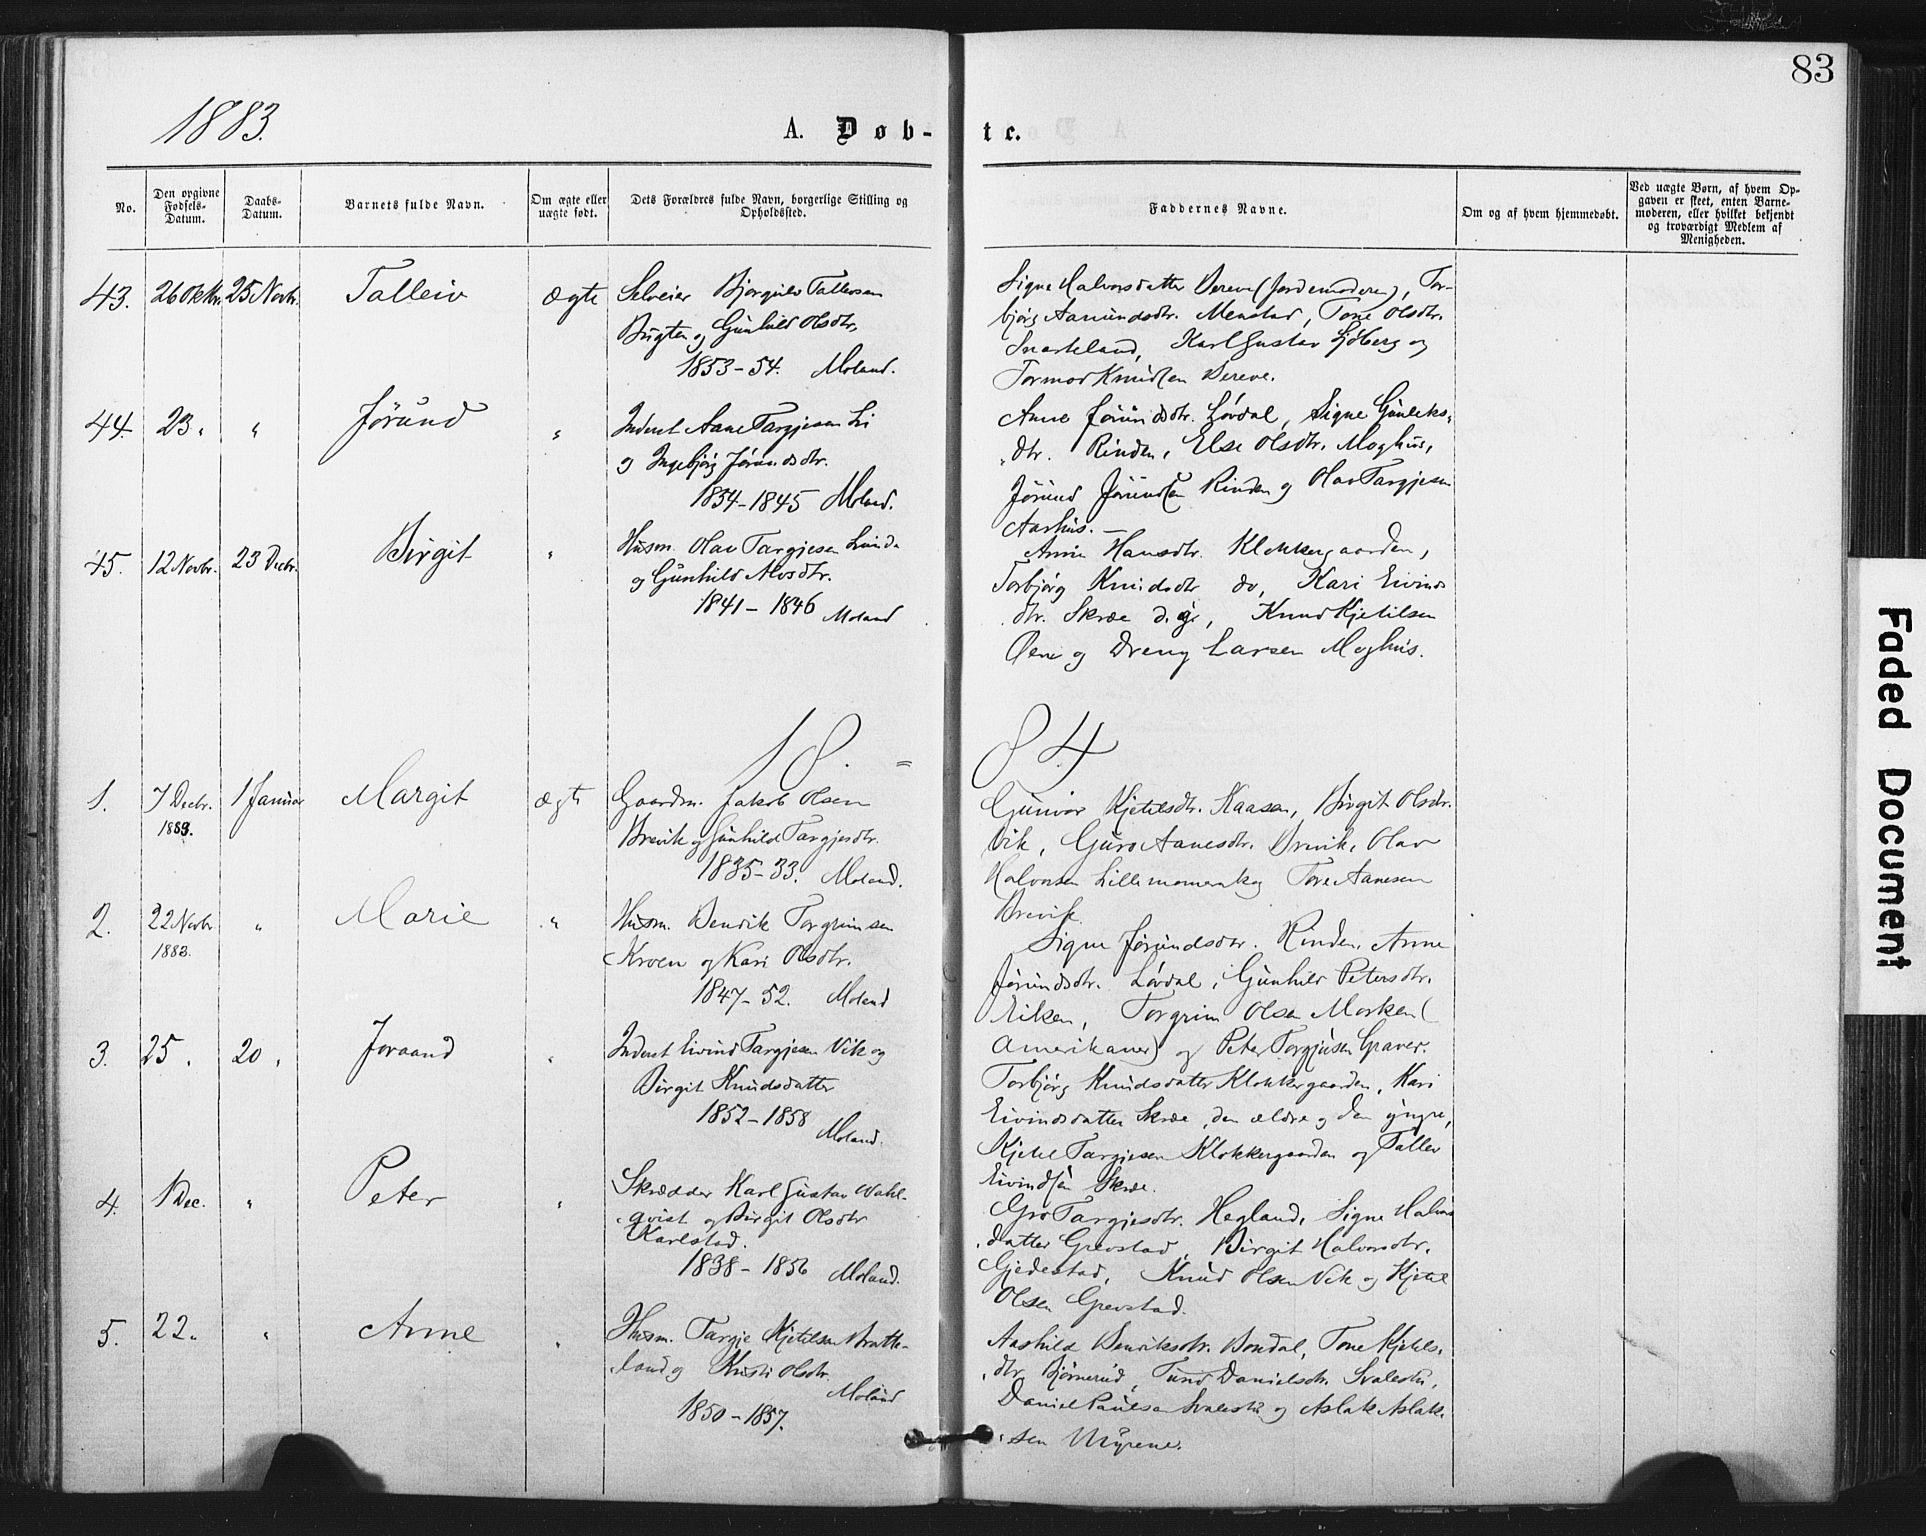 83
1883.
A. Døb-
te.
No.
Den opgivne Fødsels-Datum.
Daabs-Datum.
Barnets fulde Navn.
Om ægte eller uægte født.
Dets Forældres fulde Navn, borgerlige Stilling og Opholdssted.
Faddernes Navne.
Om og af hvem hjemmedøbt.
Ved uægte Børn, af hvem Op-
gaven er skeet, enten Barne-
moderen, eller hvilket bekjendt
og troværdigt Medlem af
Menigheden.
43. 26 Oktbr. 25 Novbr. Talleiv ægte
Selveier Bjorgulv Tallevsen
Bugten og Gunhild Olsdtr.
1853-54. Moland.
Signe Halvorsdatter Bereve (Jordemoderen), Tor-
bjørg Aamundsdtr. Menstad, Tone Olsdtr.
Snarteland, Karl Gustav Sjøberg og
Tormod Knudsen Bereve.
44. 23 " " Jørund "
Inderst Aane Targjesen Li
og Ingebjørg Jørundsdtr.
1854-1845 Moland.
Anne Jørundsdtr. Løvdal, Signe Gunleks-
dtr. Rinden, Else Olsdtr. Moghus,
Jørund Jørundsen Rinden og Olav Targjesen
Aarhus. —
45. 12 Novbr. 23 Decbr. Birgit "
Husm. Olav Targjesen Lund-
og Gunhild Alvsdtr.
1841-1846 Moland
Anne Hansdtr. Klokkergaarden,
Torbjørg Knudsdtr do, Kari Eivinds
dtr. Skræe d. y., Knud Kjetilsen
Øene og Dreng Larsen Moghus.
18 = 84
1. 7 Decbr. 1883. 1 Januar Margit ægte
Gaardm. Jakob Olsen
Brevik og Gunhild Targjesdtr.
1835-33. Moland.
Gunvor Kjetilsdtr. Kaasen, Birgit Olsdtr.
Vik, Guro Aanesdtr. Brevik, Olav
Halvorsen Lillemoen og Tore Aanesen
Brevik.
2. 22 Novbr 1883. " Marie "
Husm. Bendik Torgrimsen
Kroen og Kari Olsdtr.
1847-52. Moland
Signe Jørundsdtr. Rinden, Anne
Jørundsdtr. Løvdal, Gunhild Petersdtr.
Eiken, Torgrim Olsen Morken (
Amerikaner) og Peter Torgjusen Graver.
3. 25 " 20 " Joraand "
Inderst Eivind Targjesen Vik og
Birgit Knudsdatter
1852-1858 Moland.
Torbjørg Knudsdatter Klokkergaarden, Kari
Eivindsdatter Skræe, den ældre og den yngre,
Kjetil Targjesen Klokkergaarden og Tallev
Eivindsen Skræe.
4. 1 Dec. " Peter "
Skrædder Karl Gustav Wahl-
qvist og Birgit Olsdtr
Karlstad.
1838-1856 Moland.
Gro Targjesdtr. Hegland, Signe Halvors
datter Grevstad, Birgit Halvorsdtr.
Gjedestad, Knud Olsen Vik og Kjetil
Olsen Grevstad.
5. 22 " " Anne "
Husm. Targje Kjetilsen Bratte-
land og Kristi Olsdtr.
Moland
1850-1857.
Aashild Benriksdtr. Bondal, Tone Kjetils-
dtr. Bjørnerud, Tund Danielsdtr. Svalestu,
Daniel Paulsen Svalestu og Aslak Aslak-
sen Myrene.
Faded Document